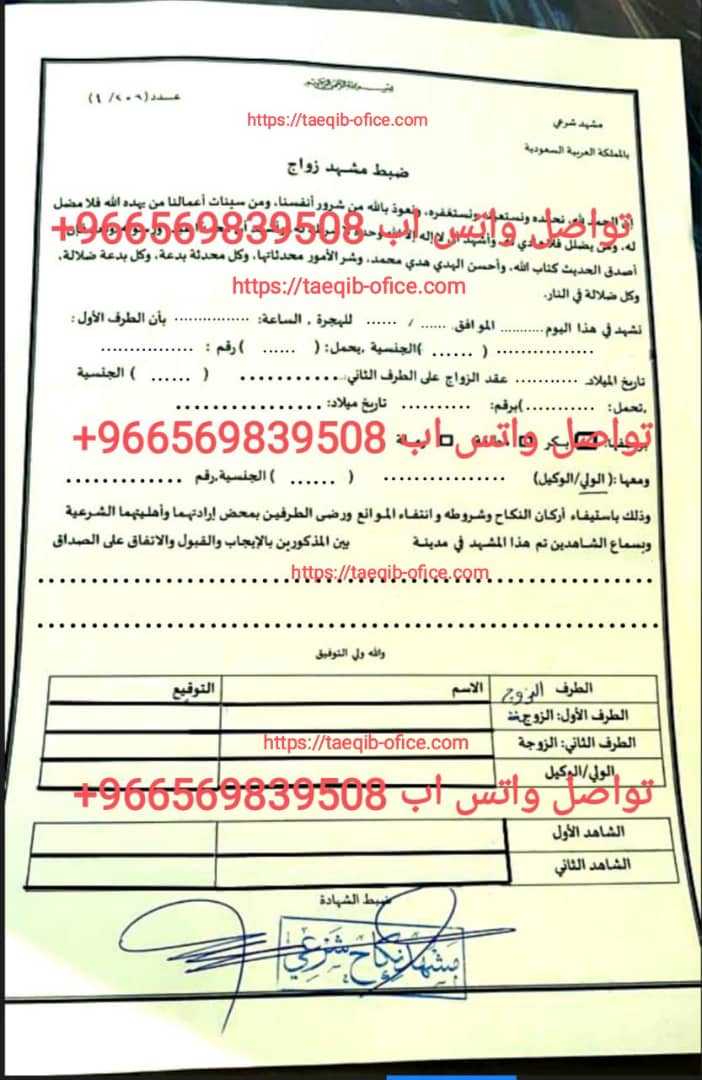 بسم الله الرحمن الرحيم
عدد (٢٠٦/ ٤)
https://taeqib-ofice.com
مشهد شرعي
بالمملكة العربية السعودية
ضبط مشهد زواج
إن الحمد لله نحمده ونستعينه ونستغفره، ونعوذ بالله من شرور أنفسنا، ومن سيئات أعمالنا من يهده الله فلا مضل
تواصل واتس اب 966569839508+
له، ومن يضلل فلا هادي له، وأشهد أن لا إله إلا الله وحده لا شريك له
أصدق الحديث كتاب الله، وأحسن الهدي هدي محمد، وشر الأمور محدثاتها، وكل محدثة بدعة، وكل بدعة ضلالة،
https://taeqib-ofice.com
وكل ضلالة في النار.
نشهد في هذا اليوم ........... الموافق ...... / ...... للهجرة , الساعة: ................. بأن الطرف الأول:
................. ( ...... )الجنسية ,يحمل: ( ...... ) رقم : .................
تاريخ الميلاد ............ عقد الزواج على الطرف الثاني: ............ ( ...... ) الجنسية
,تحمل: (............)برقم: ............ تاريخ ميلاد: .................
بكر
تواصل واتس اب 966569839508+
ومعها :( الولي/الوكيل) ................. ( ...... ) الجنسية,رقم .................
وذلك باستيفاء أركان النكاح وشروطه و انتفاء الموانع ورضى الطرفين بمحض إرادتهما وأهليتهما الشرعية
وبسماع الشاهدين تم هذا المشهد في مدينة بين المذكورين بالإيجاب والقبول والاتفاق على الصداق
https://taeqib-ofice.com
والله ولي التوفيق
الطرف الزوج الاسم التوقيع
الطرف الأول: الزوج
الطرف الثاني: الزوجة
https://taeqib-ofice.com
الولي/الوكيل
تواصل واتس اب 966569839508+
الشاهد الأول
الشاهد الثاني
ضبط الشهادة
مشهد نكاح شرعي